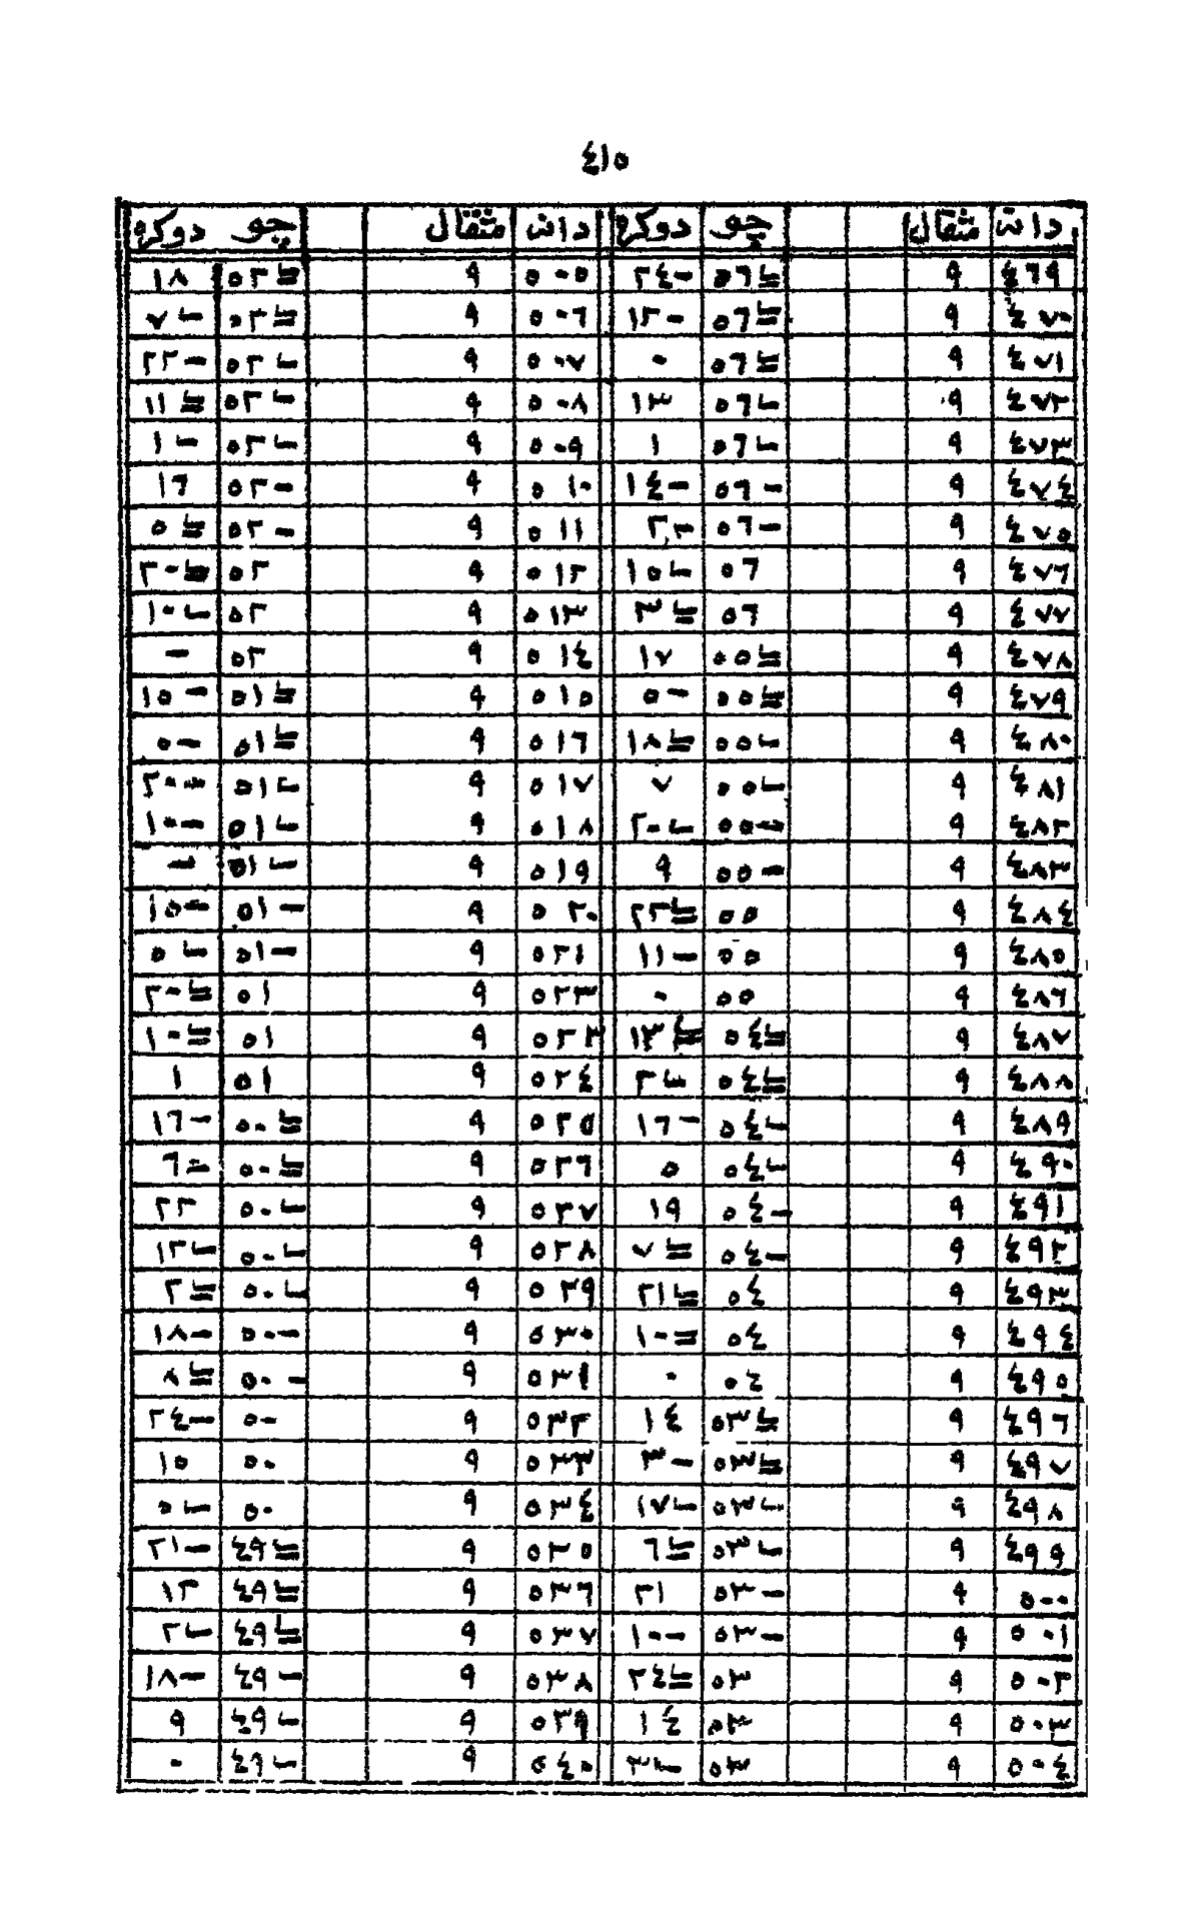 ٤١٥
دانه مثقال چو دوكره دانه مثقال چو دوكره
٤٦٩ ٩ ٥٦⊨ ٢٤- ٥٠٥ ٩ ٥٢⊨ ١٨
٤٧٠ ٩ ٥٦⊨ ١٢- ٥٠٦ ٩ ٥٢⊨ ٧⊢
٤٧١ ٩ ٥٦⊨ ٠ ٥٠٧ ٩ ٥٢⊢ ٢٢-
٤٧٢ ٩ ٥٦⊢ ١٣ ٥٠٨ ٩ ٥٢⊢ ١١⊨
٤٧٣ ٩ ٥٦⊢ ١ ٥٠٩ ٩ ٥٢⊢ ١⊢
٤٧٤ ٩ ٥٦- ١٤- ٥١٠ ٩ ٥٢- ١٦
٤٧٥ ٩ ٥٦- ٥١١ ٩ ٥٢- ٥⊨
٤٧٦ ٩ ٥٦ ١٥⊢ ٥١٢ ٩ ٥٢ ٢٠⊨
٤٧٧ ٩ ٥٦ ٣⊨ ٥١٣ ٩ ٥٢ ١٠⊢
٤٧٨ ٩ ٥٥⊨ ١٧ ٥١٤ ٩ ٥٢ -
٤٧٩ ٩ ٥٥⊨ ٥- ٥١٥ ٩ ٥١⊨ ١٥-
٤٨٠ ٩ ٥٥⊢ ١٨⊨ ٥١٦ ٩ ٥١⊨ ٥-
٤٨١ ٩ ٥٥⊢ ٧ ٥١٧ ٩ ٥١⊢ ٢٠-
٤٨٢ ٩ ٥٥- ٢٠⊢ ٥١٨ ٩ ٥١⊢ ١٠-
٤٨٣ ٩ ٥٥- ٩ ٥١٩ ٩ ٥١⊢ -
٤٨٤ ٩ ٥٥ ٢٢⊨ ٥٢٠ ٩ ٥١- ١٥-
٤٨٥ ٩ ٥٥ ١١- ٥٢١ ٩ ٥١- ٥⊢
٤٨٦ ٩ ٥٥ ٠ ٥٢٢ ٩ ٥١ ٢٠⊨
٤٨٧ ٩ ٥٤⊨ ١٣⊨ ٥٢٣ ٩ ٥١ ١٠⊨
٤٨٨ ٩ ٥٤⊨ ٢⊢ ٥٢٤ ٩ ٥١ ١
٤٨٩ ٩ ٥٤⊢ ١٦- ٥٢٥ ٩ ٥٠⊨ ١٦-
٤٩٠ ٩ ٥٤⊢ ٥ ٥٢٦ ٩ ٥٠⊨ ٦-
٤٩١ ٩ ٥٤- ١٩ ٥٢٧ ٩ ٥٠⊢ ٢٢
٤٩٢ ٩ ٥٤- ٧⊨ ٥٢٨ ٩ ٥٠⊢ ١٢⊢
٤٩٣ ٩ ٥٤ ٢١⊨ ٥٢٩ ٩ ٥٠⊢ ٢⊨
٤٩٤ ٩ ٥٤ ١٠⊨ ٥٣٠ ٩ ٥٠- ١٨-
٤٩٥ ٩ ٥٤ ٠ ٥٣١ ٩ ٥٠- ٨⊨
٤٩٦ ٩ ٥٣⊨ ١٤ ٥٣٢ ٩ ٥٠ ٢٤-
٤٩٧ ٩ ٥٣⊨ ٣- ٥٣٣ ٩ ٥٠ ١٥
٤٩٨ ٩ ٥٣⊢ ١٧⊢ ٥٣٤ ٩ ٥٠ ٥⊢
٤٩٩ ٩ ٥٣⊢ ٦⊨ ٥٣٥ ٩ ٤٩⊨ ٢١-
٥٠٠ ٩ ٥٣- ٢١ ٥٣٦ ٩ ٤٩⊨ ١٢
٥٠١ ٩ ٥٣- ١٠- ٥٣٧ ٩ ٤٩⊨ ٢⊢
٥٠٢ ٩ ٥٣ ٢٤⊨ ٥٣٨ ٩ ٤٩- ١٨-
٥٠٣ ٩ ٥٣ ١٤ ٥٣٩ ٩ ٤٩⊢ ٩
٥٠٤ ٩ ٥٣ ٣⊢ ٥٤٠ ٩ ٤٩⊢ ٠